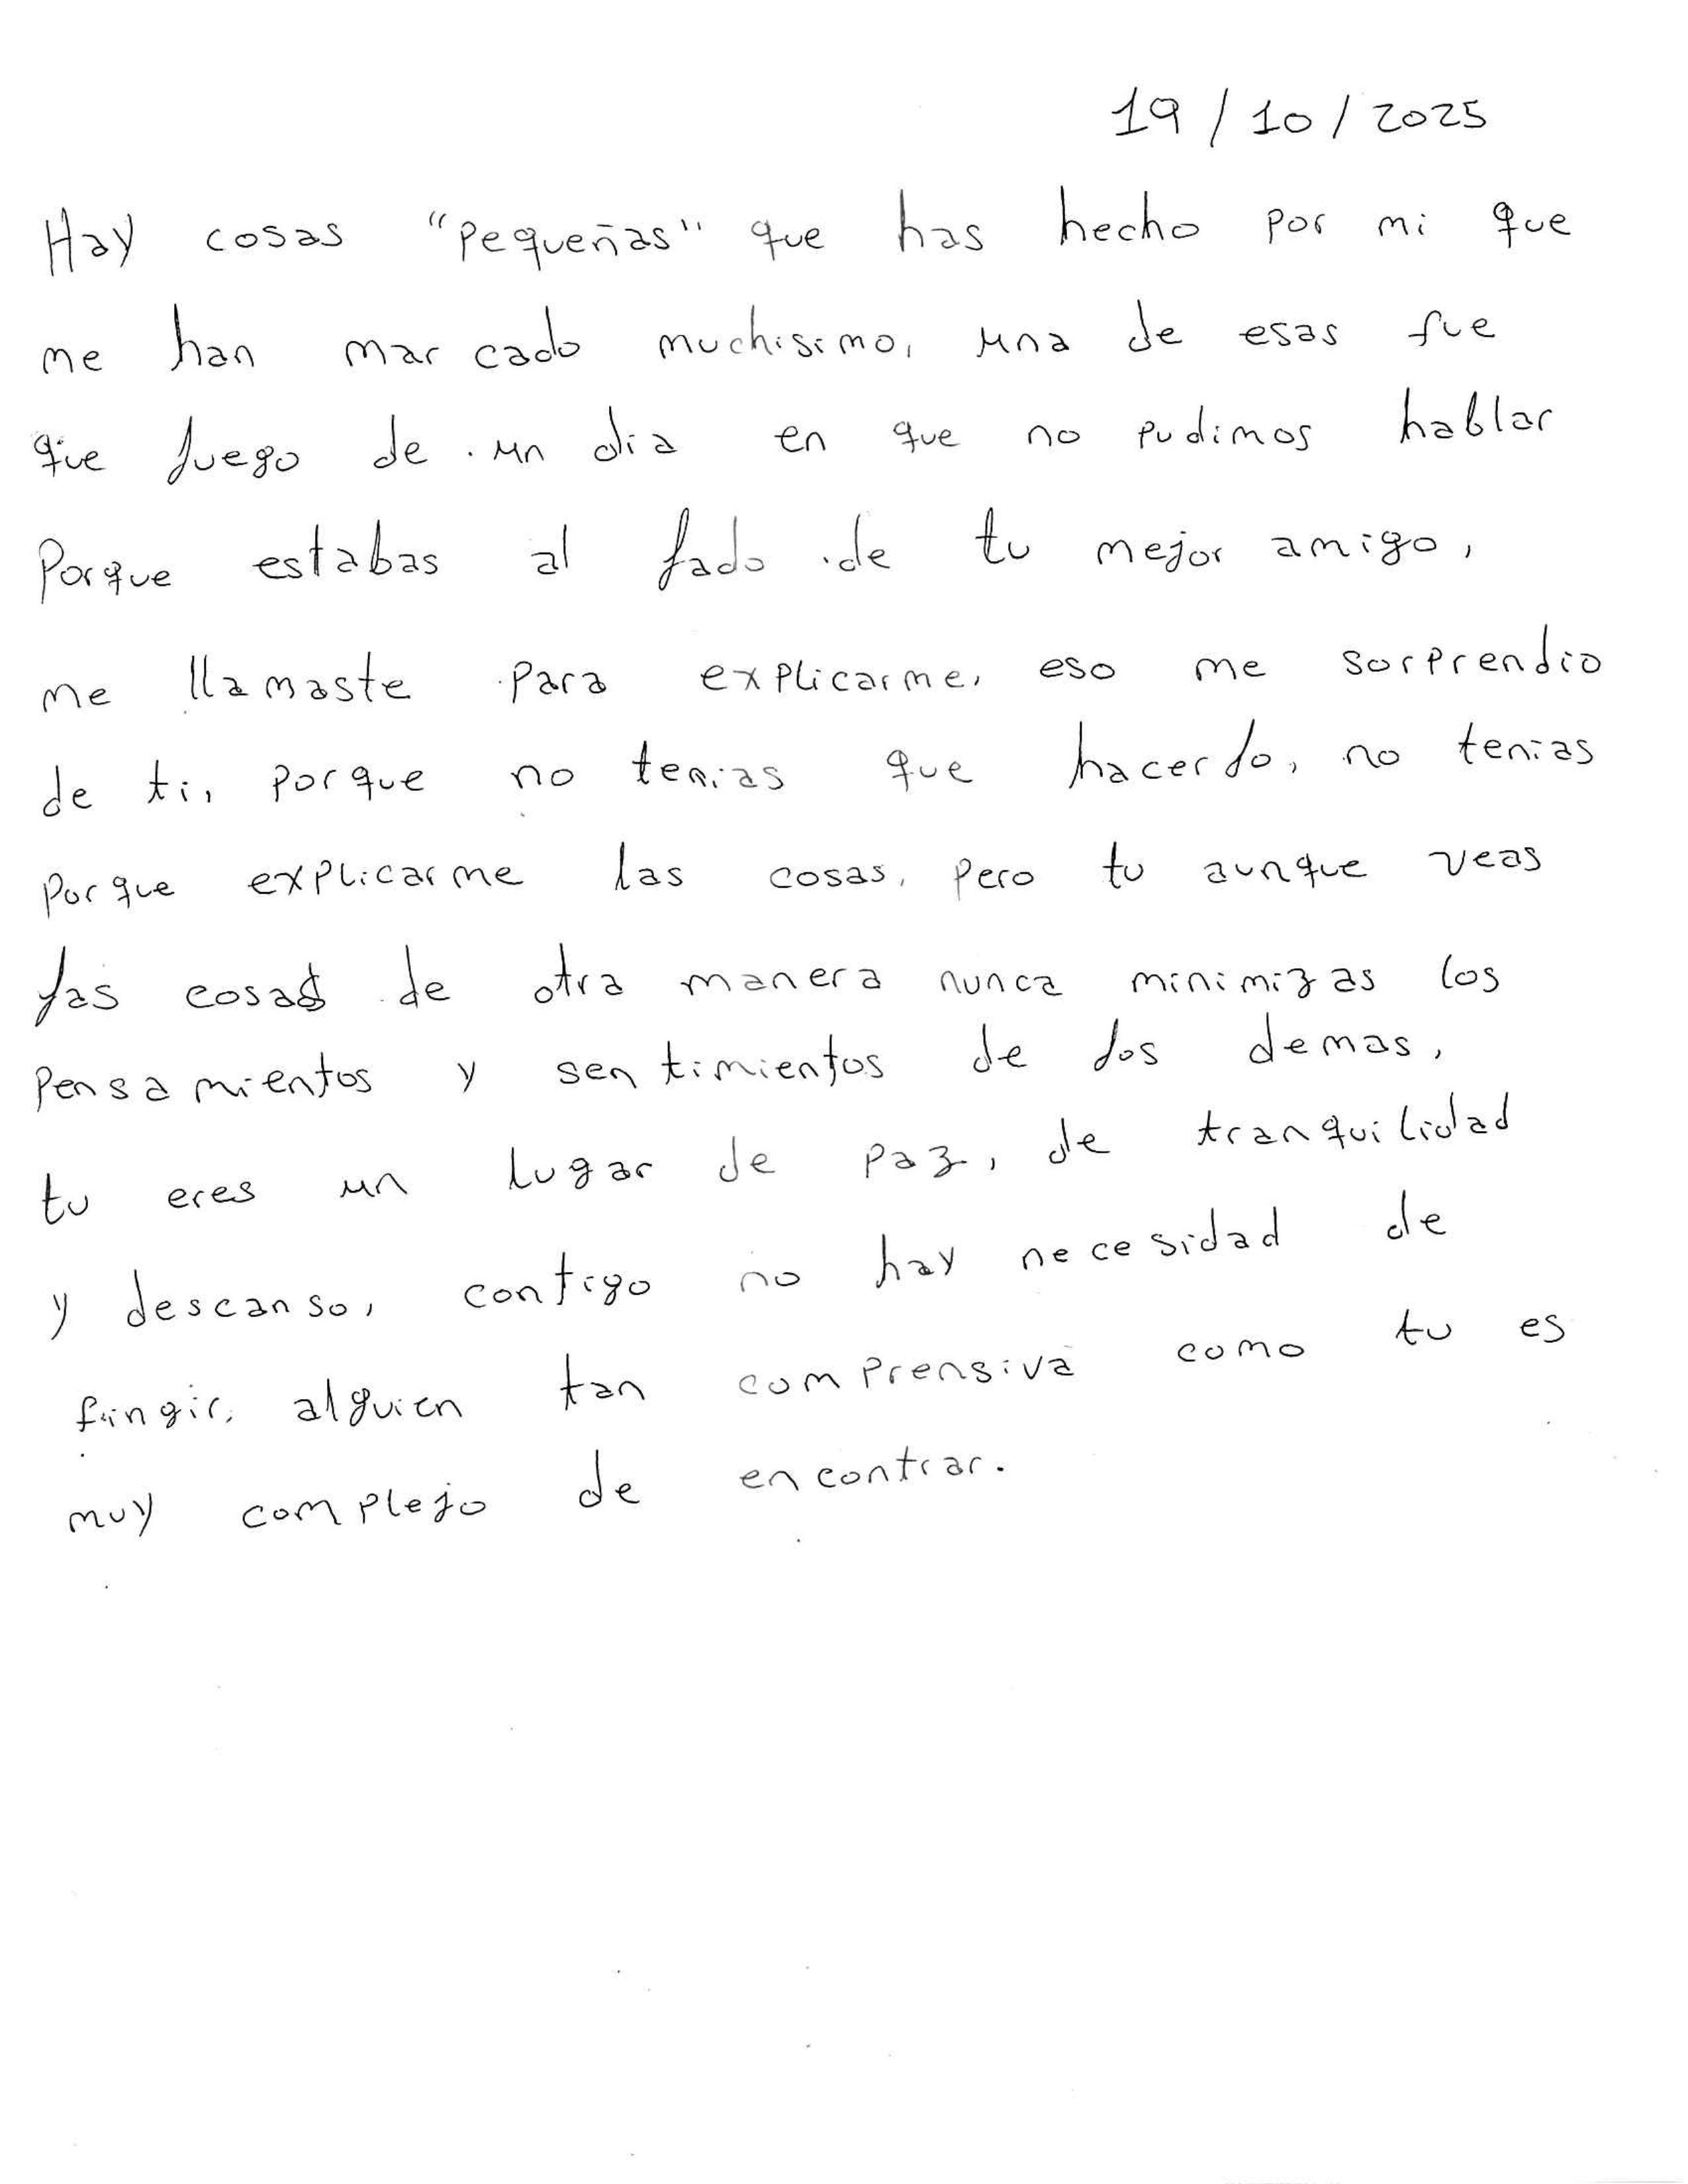 19/10/2025
Hay cosas "pequeñas" que has hecho por mi que
me han marcado muchisimo, una de esas fue
que luego de un dia en que no pudimos hablar
Porque estabas al lado de tu mejor amigo,
me llamaste para explicarme, eso me sorprendio
de ti, porque no tenias que hacerlo, no tenias
porque explicarme las cosas, pero tu aunque veas
las cosas de otra manera nunca minimizas los
pensamientos y sentimientos de los demas,
tu eres un lugar de paz, de tranquilidad
y descanso, contigo no hay necesidad de
fingir, alguien tan comprensiva como tu es
muy complejo de encontrar.